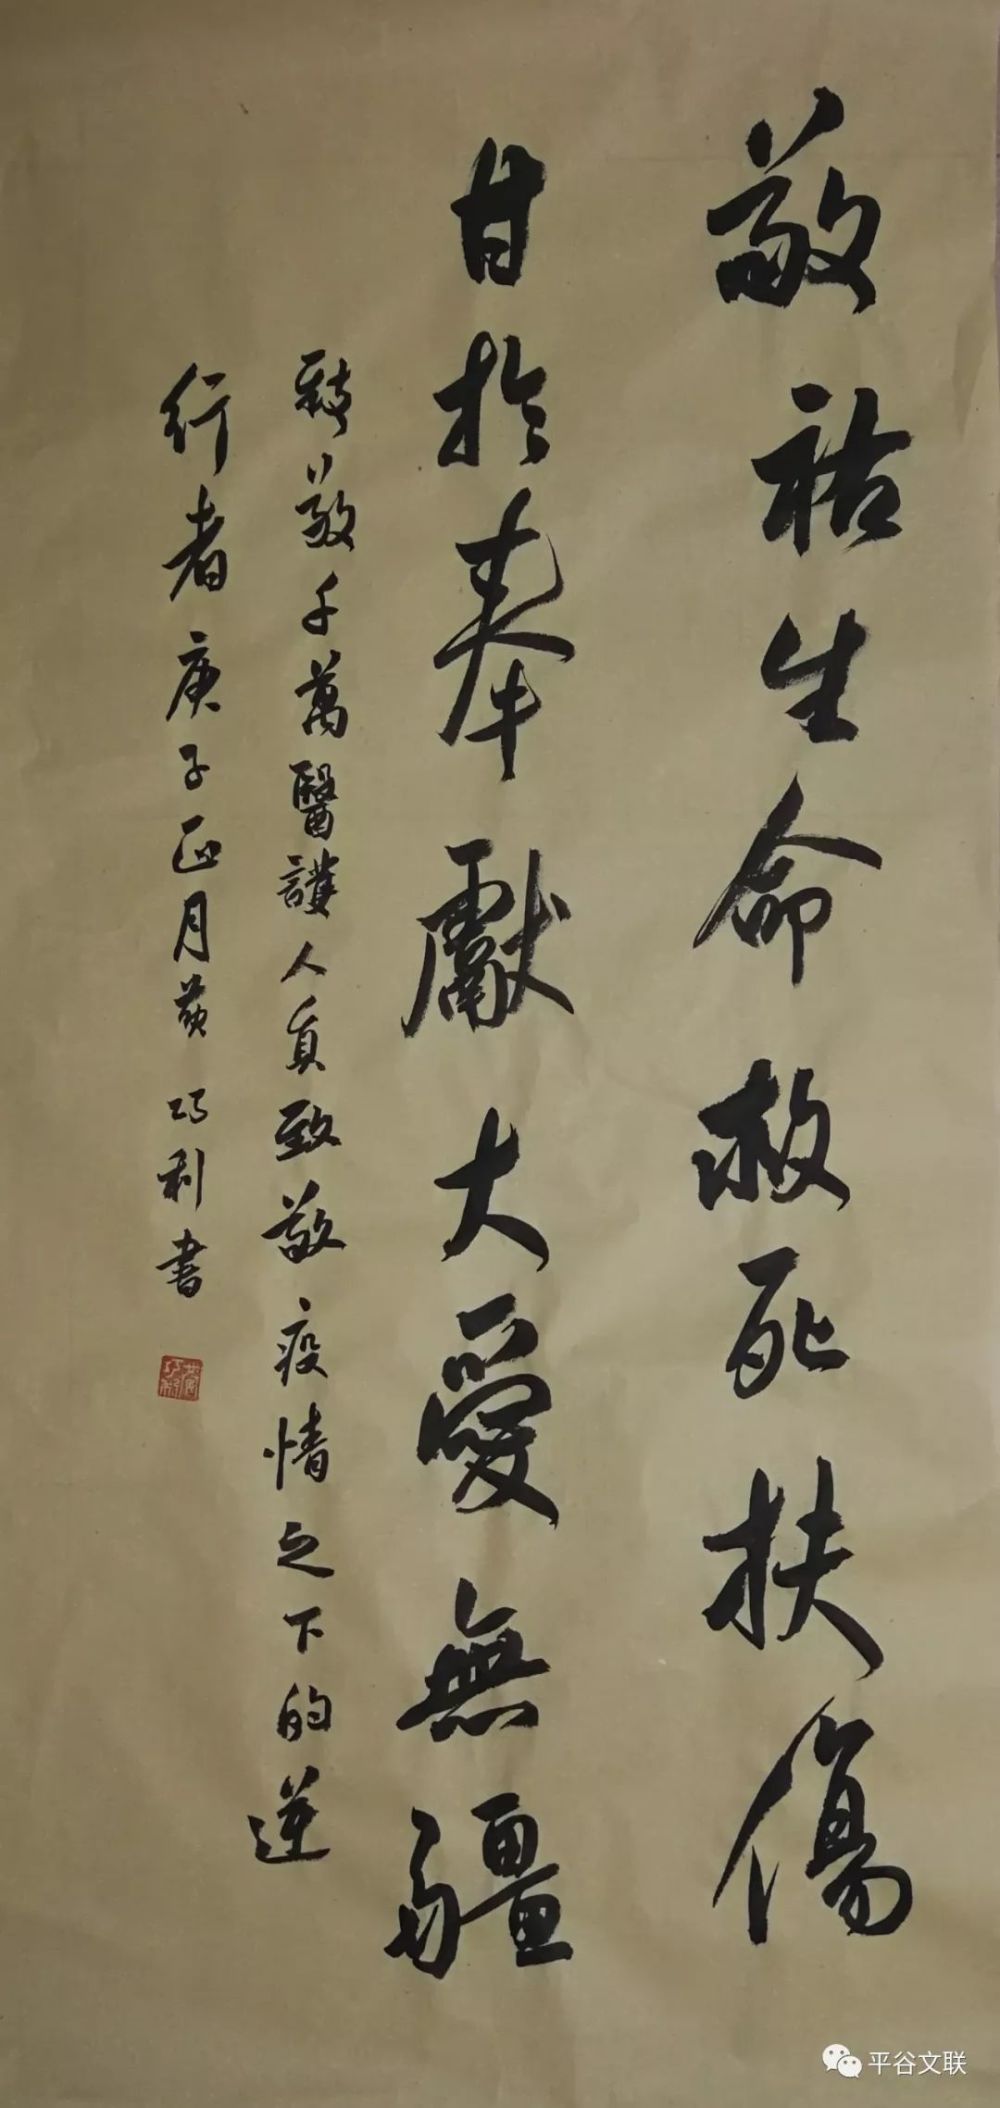 敬祐生命救死扶傷
甘於奉獻大愛無疆
致敬千萬醫護人員致敬疫情之下的逆
行者庚子正月黄巧利書
平谷文联